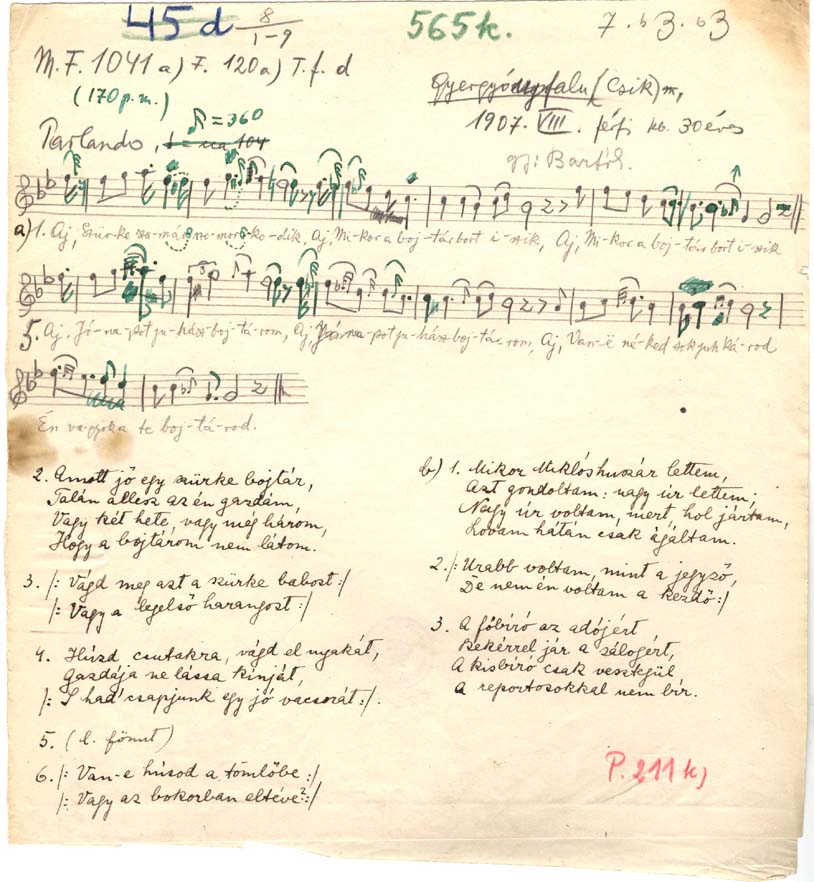 45 d 8/1-9
565 k.
7. b3. b3
M.F. 1041 a) F. 120 a) T.f. d
(170 p.m.)
(Csík) m,
♪=360
Parlando,
1907. VIII. férfi kb. 30 éves
gy: Bartók.
a) 1. Aj, Szür-ke sza-már szo-mor-ko-dik, Aj, Mi-kor a boj-tár bort i-szik, Aj, Mi-kor a boj-tár bort i-szik
5. Aj, Jó-na-pot ju-hász-boj-tá-rom, Aj, Jó-na-pot ju-hász boj-tár rom, Aj, Van-ë né-ked sok juh ká-rod
Én va-gyok a te boj-tá-rod.
2. Amott jő egy szürke bojtár,
Talán allesz az én gazdám,
Vagy két hete, vagy meg három,
Hogy a bojtárom nem látom.
3. /: Vágd meg azt a szürke babost :/
/: Vagy a legelső harangost :/
4. Húzd csutakra, vágd el nyakát,
Gazdája ne lássa kínját,
/: S had' csapjunk egy jó vacsorát :/.
5. (l. fönnt)
6. /: Van-e húsod a tömlőbe :/
/: Vagy az bokorban eltéve? :/
b) 1. Mikor Miklóshuszár lettem,
Azt gondoltam: nagy úr lettem;
Nagy úr voltam, mert, hol jártam,
Lovam hátán csak ágáltam.
2. /: Urabb voltam, mint a jegyző,
De nem én voltam a kezdő :/
3. A főbíró az adójért
Bekérrel jár a zálogért,
A kisbíró csak vesztegül
A reportosokkal nem bír.
P. 211 k)